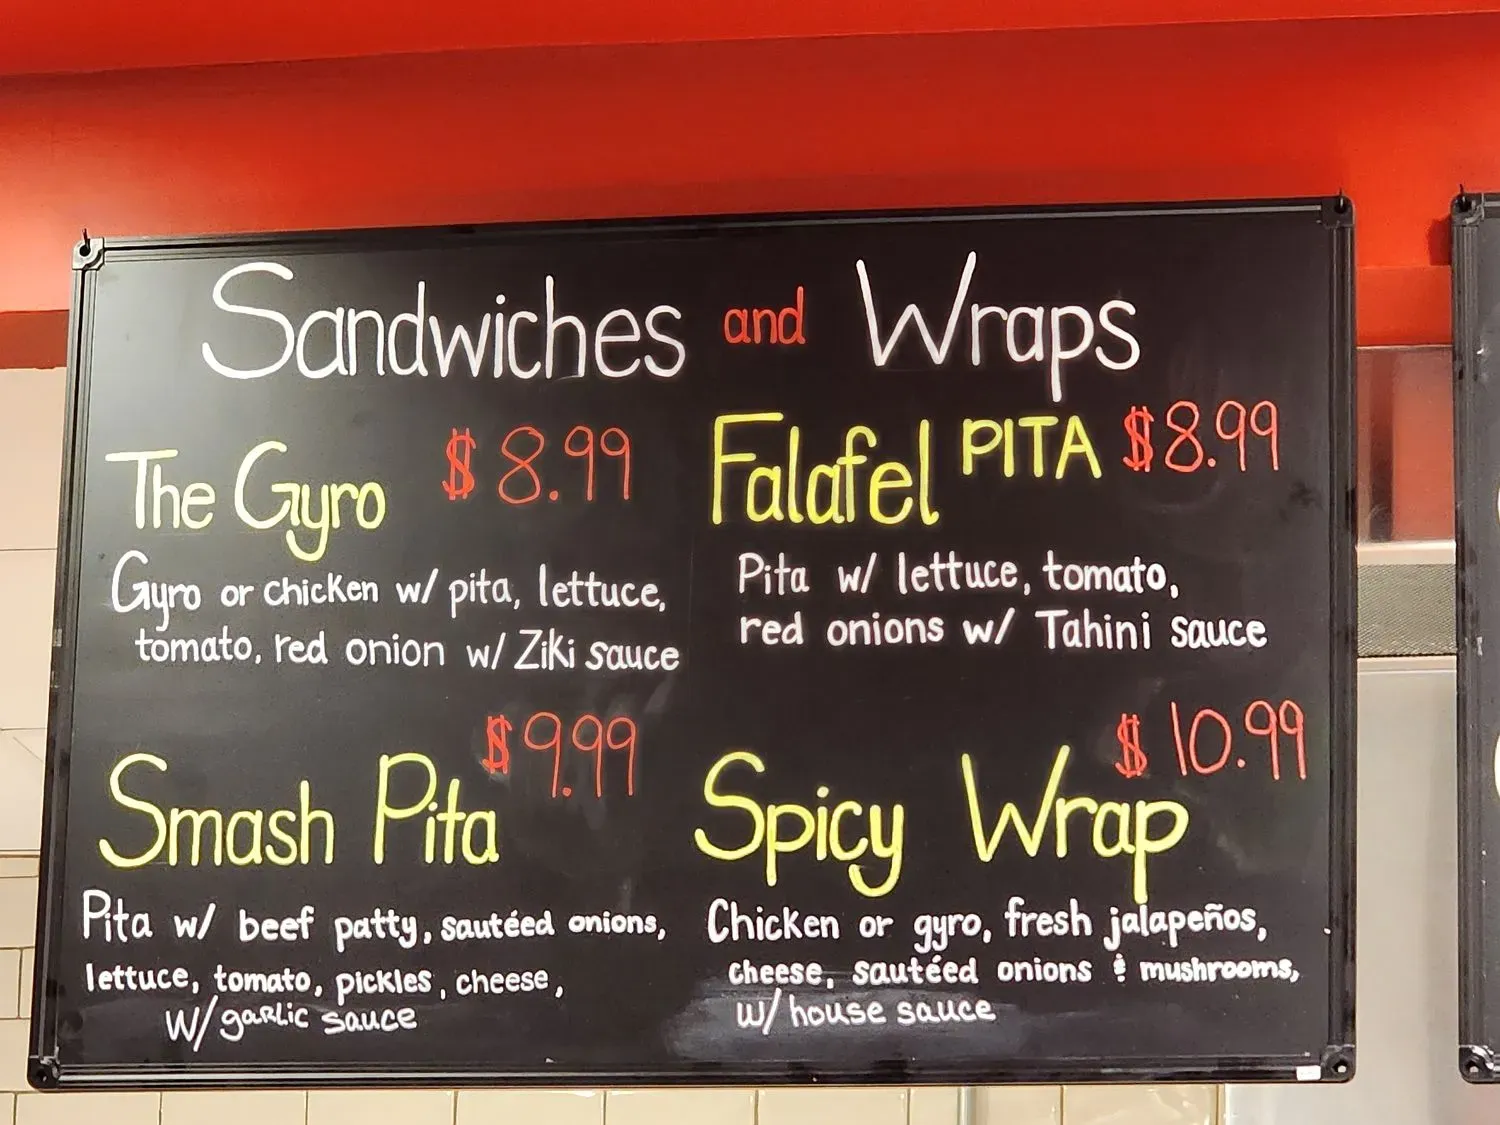 Sandwiches and Wraps
The Gyro $8.99
Gyro or chicken w/ pita, lettuce,
tomato, red onion w/ Ziki sauce
Falafel PITA $8.99
Pita w/ lettuce, tomato,
red onions w/ Tahini sauce
Smash Pita $9.99
Pita w/ beef patty, sautéed onions,
lettuce, tomato, pickles, cheese,
w/ garlic sauce
Spicy Wrap $10.99
Chicken or gyro, fresh jalapeños,
cheese, sautéed onions & mushrooms,
w/ house sauce